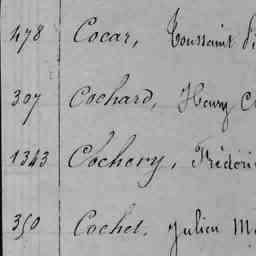 478 Cocar, Toussaint
307 Cochard, Henry
1343 Cochery, Frédéric
350 Cochet, Julien